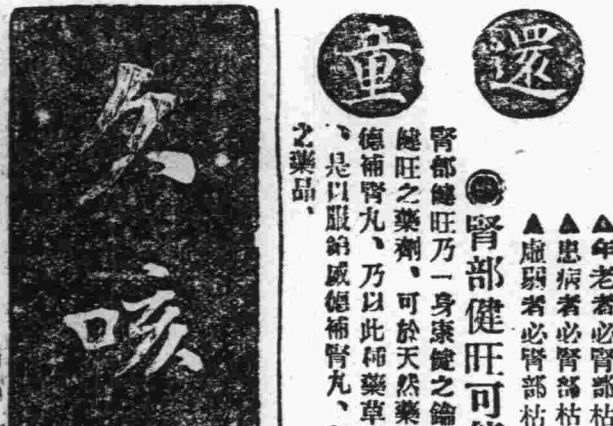 還童
▲年老者必腎部枯
▲患病者必腎部枯
▲虛弱者必腎部枯
腎部健旺可
腎部健旺乃一身康健之鑰
健旺之藥劑、可於天然藥
德補腎丸、乃以此種藥草
、是以服給威德補腎丸、
之藥品、
久咳